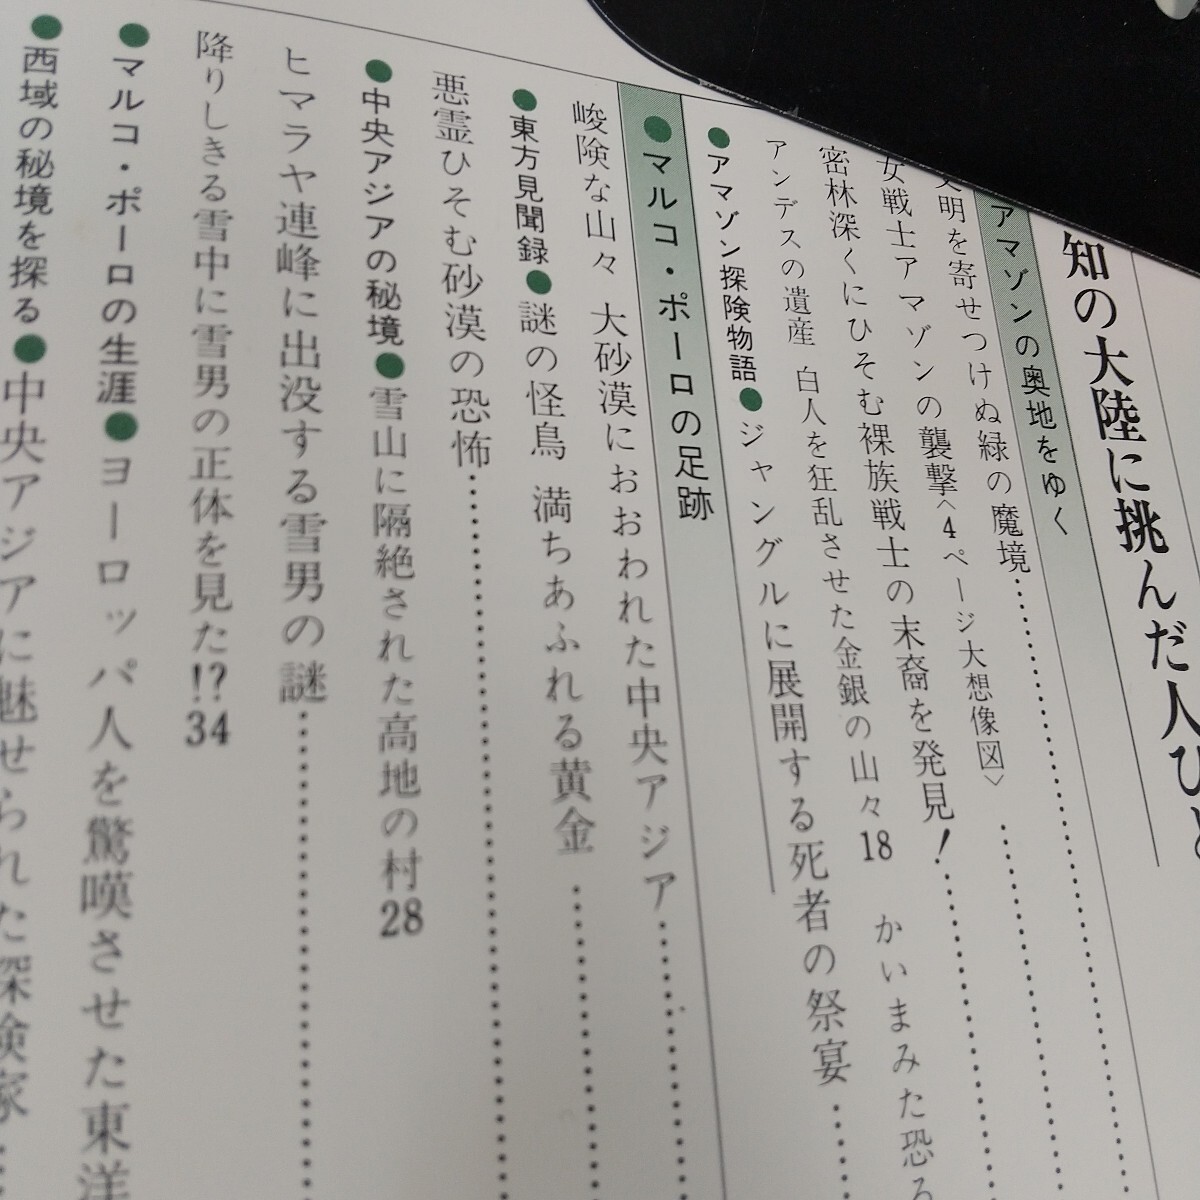 知の大陸に挑んだ人ひ
アマゾンの奥地をゆく
明を寄せつけぬ緑の魔境
女戦士アマゾンの襲撃〈4ページ大想像図〉
密林深くにひそむ裸族戦士の末裔を発見!
アンデスの遺産 白人を狂乱させた金銀の山々18 かいまみた恐る
●アマゾン探険物語●ジャングルに展開する死者の祭宴
●マルコ・ポーロの足跡
峻険な山々 大砂漠におおわれた中央アジア
●東方見聞録●謎の怪鳥 満ちあふれる黄金
悪霊ひそむ砂漠の恐怖
●中央アジアの秘境●雪山に隔絶された高地の村28
ヒマラヤ連峰に出没する雪男の謎
降りしきる雪中に雪男の正体を見た!?34
●マルコ・ポーロの生涯●ヨーロッパ人を驚嘆させた東洋
●西域の秘境を探る●中央アジアに魅せられた探険家